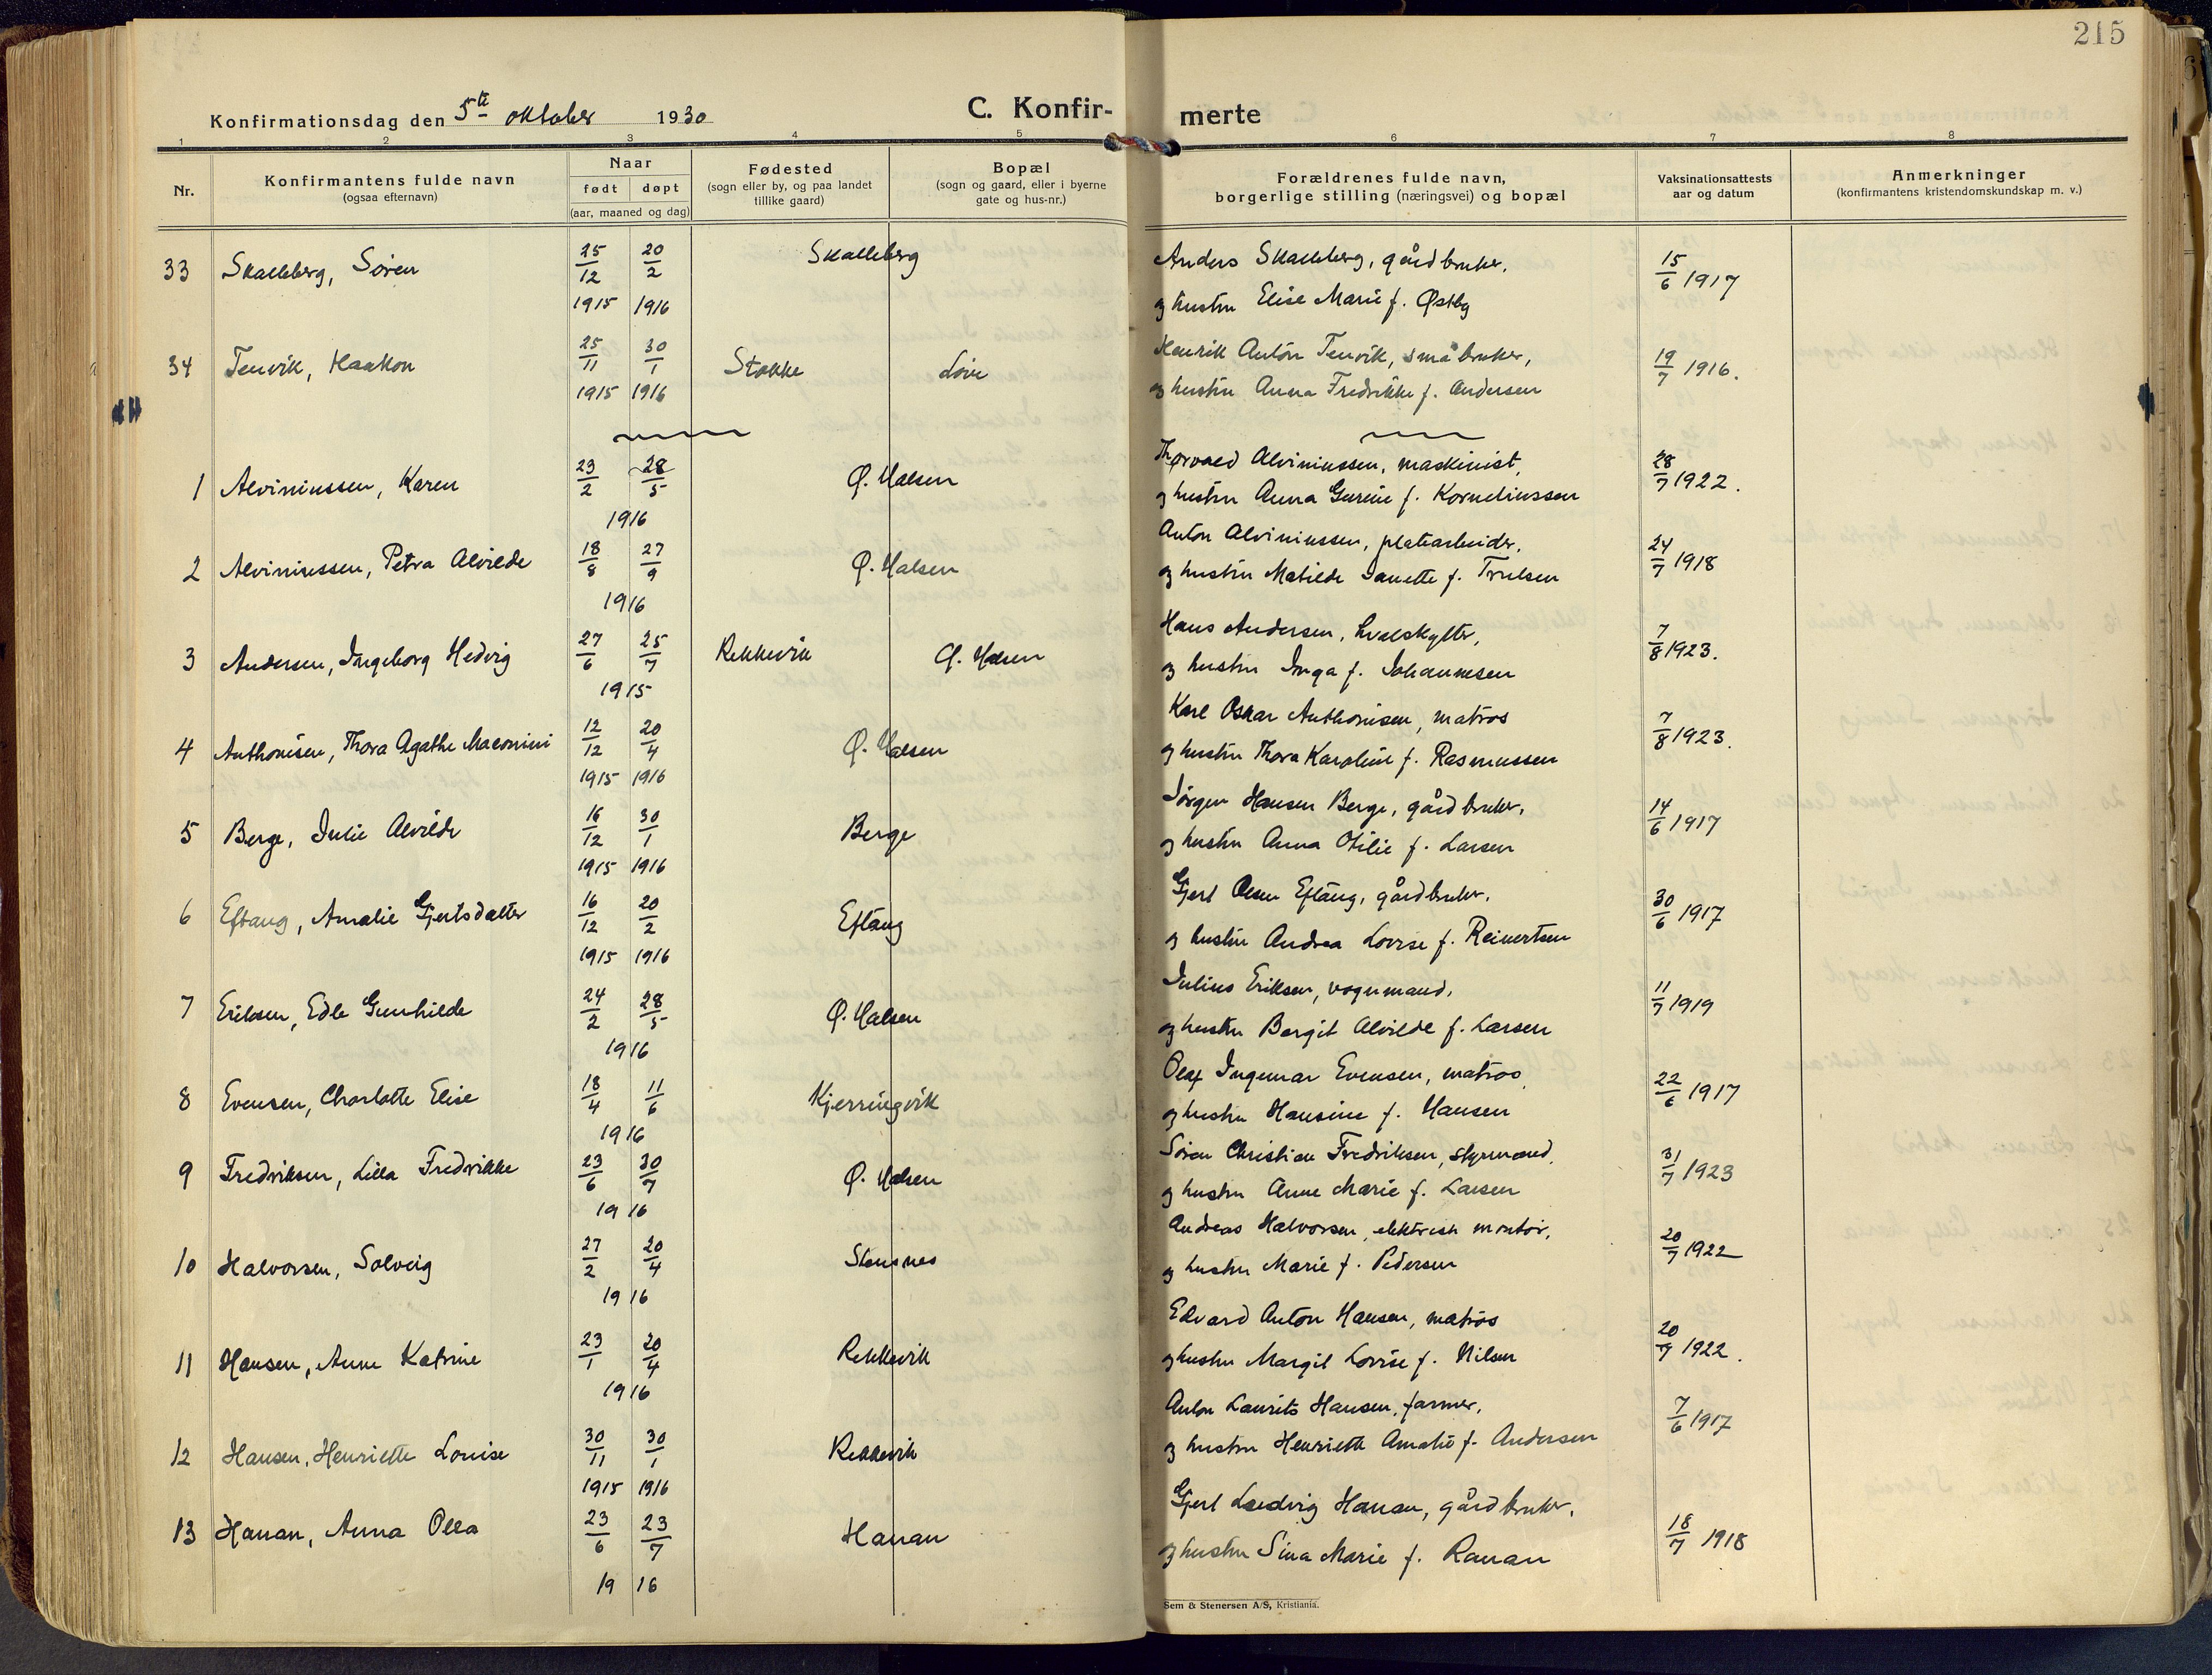 215
Konfirmationsdag den 5te oktober 1930
C. Konfir-
merte
1 2 3 4 5 6 7 8
Nr.
Konfirmantens fulde navn
(ogsaa efternavn)
Naar
født døpt
(aar, maaned og dag)
Fødested
(sogn eller by, og paa landet
tillike gaard)
Bopæl
(sogn og gaard, eller i byerne
gate og hus-nr.)
Forældrenes fulde navn,
borgerlige stilling (næringsvei) og bopæl
Vaksinationsattests
aar og datum
Anmerkninger
(konfirmantens kristendomskundskap m. v.)
33 Skalleberg, Søren 25/12 1915 20/2 1916 Skalleberg Anders Skalleberg, gårdbruker, 15/6 1917
og hustru Elise Marie f. Østby
34 Tenvik, Haakon 25/11 1915 30/1 1916 Stokke Løve Henrik Anton Tenvik, småbruker, 19/7 1916.
og hustru Anna Fredrikke f. Andersen
1 Alviniussen, Karen 23/2 28/5 1916 Ø. Halsen Thorvald Alviniussen, maskinist, 28/7 1922.
og hustru Anna Gurine f. Korneliussen
2 Alviniussen, Petra Alvilde 18/8 27/9 1916 Ø. Halsen Anton Alviniussen, platearbeider, 24/7 1918
og hustru Matilde Janette f. Trulsen
3 Andersen, Ingeborg Hedvig 27/6 25/7 1915 Rekkevik Ø. Halsen Hans Andersen, hvalskytter, 7/8 1923.
og hustru Inga f. Johannesen
4 Anthonisen, Thora Agathe 12/12 1915 20/4 1916 Ø. Halsen Karl Oskar Anthonisen, matros 7/8 1923.
og hustru Thora Karoline f. Rasmussen
5 Berge, Julie Alvilde 16/12 1915 30/1 1916 Berge Jørgen Hansen Berge, gårdbruker, 14/6 1917
og hustru Anna Otilie f. Larsen
6 Eftang, Amalie Gjertsdatter 16/12 1915 20/2 1916 Eftang Gjert Olsen Eftang, gårdbruker, 30/6 1917
og hustru Andrea Lovise f. Reinertsen
7 Eriksen, Edle Gunhilde 24/2 28/5 1916 Ø. Halsen Julius Eriksen, vognmand, 11/7 1919
og hustru Borgit Alvilde f. Larsen
8 Evensen, Charlotte Elise 18/4 11/6 1916 Kjerringvik Olaf Ingemar Evensen, matros, 22/6 1917
og hustru Hansine f. Hansen
9 Fredriksen, Lilla Fredrikke 23/6 30/7 1916 Ø. Halsen Søren Christian Fredriksen, styrmand, 31/7 1923
og hustru Anne Marie f. Larsen
10 Halvorsen, Solveig 27/2 20/4 1916 Stensnes Andreas Halvorsen, elektrisk montør, 20/7 1922
og hustru Marie f. Pedersen
11 Hansen, Anne Katrine 23/1 20/4 1916 Rekkevik Edvard Anton Hansen, matros 20/7 1922.
og hustru Margit Lovise f. Nilsen
12 Hansen, Henriette Louise 30/11 1915 30/1 1916 Rekkevik Anton Laurits Hansen, farmer, 7/6 1917
og hustru Henriette Amalie f. Andersen
13 Hauan, Anna Olla 23/6 23/7 1916 Hauan Gjert Ludvig Hauan, gårdbruker, 18/7 1918
og hustru Sina Marie f. Rauan
Sem & Stenersen A/S, Kristiania.